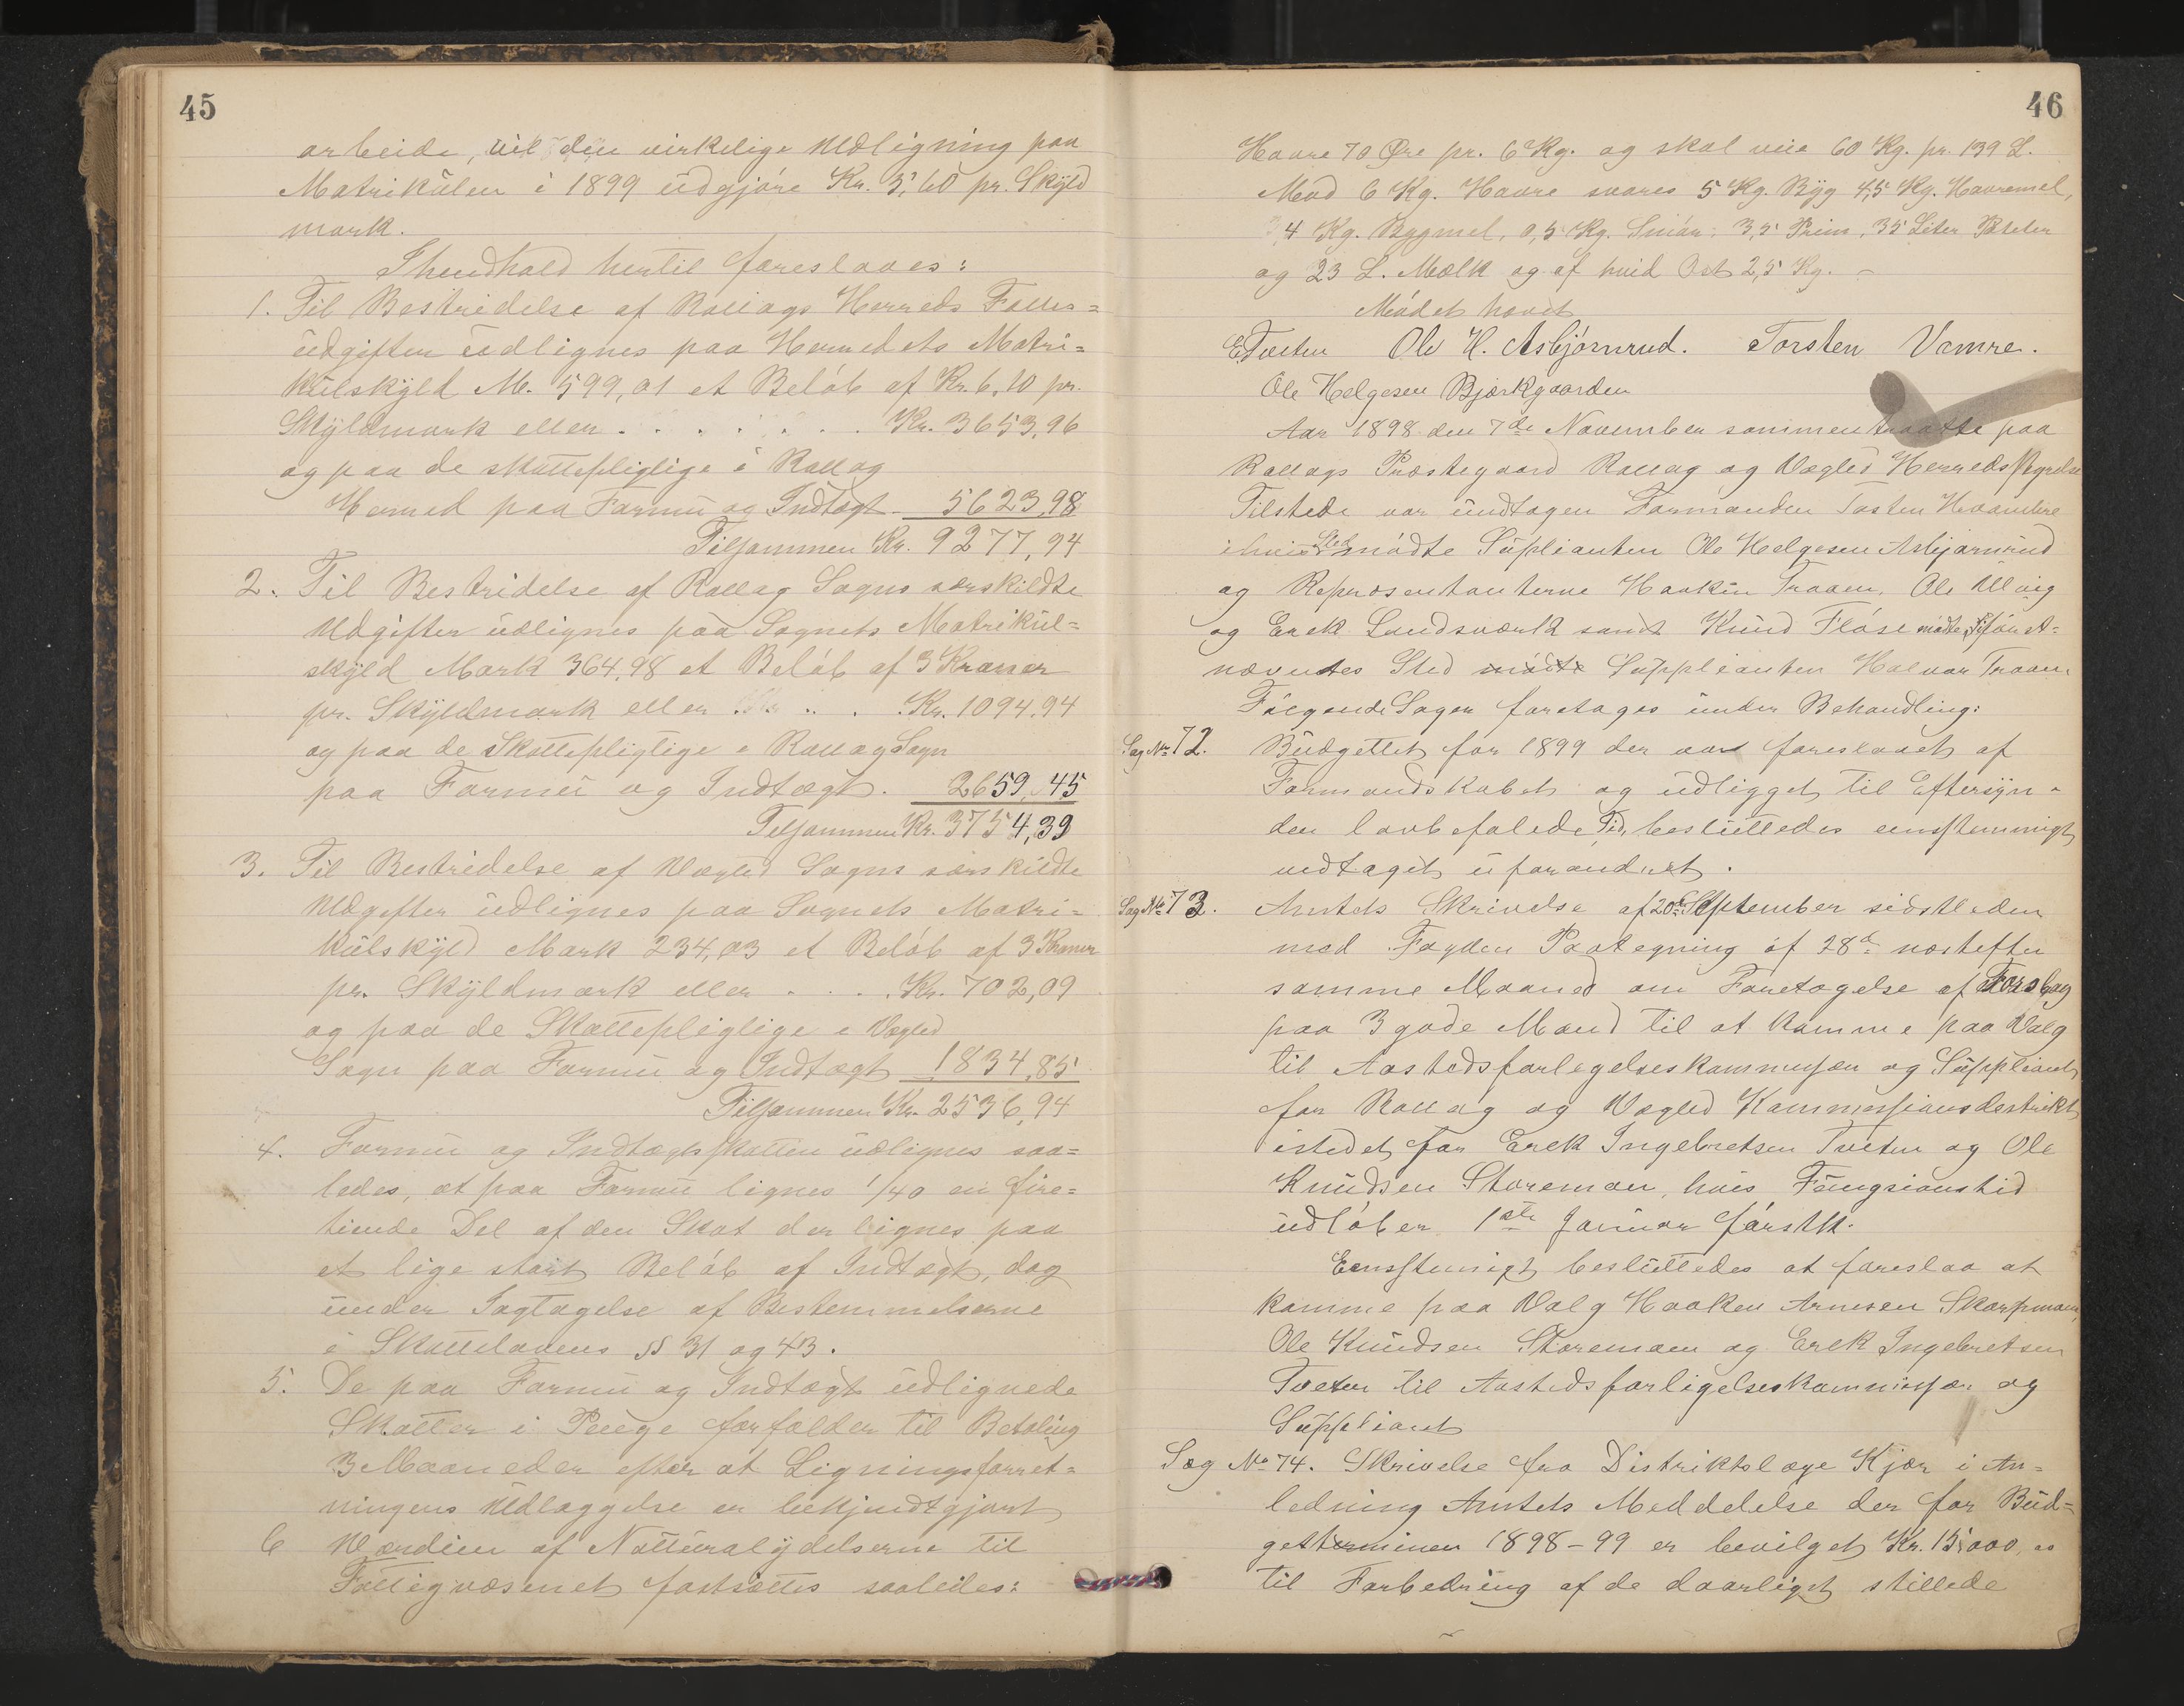 45
arbeide, vil den virkelige Udligning paa
Matrikülen i 1899 üdgjøre Kr. 5,60 pr. Skÿld
mark.
I henhold hertil foreslaaes:
1. Til Bestridelse af Rollags Herreds Felles=
üdgifter üdlignes paa Herredets Matri=
külskÿld M. 599,01 et Beløb af Kr. 6,10 pr.
Skÿldmark eller . . . . . . . Kr. 3653,96
og paa de skattepligtige i Rollag
Herred paa Formü og Indtægt - 5623,98
Tilsammen Kr. 9277,94
2. Til Bestridelse af Rollag Sogns særskildte
Udgifter üdlignes paa Sognets Matrikül=
skÿld Mark 364,98 et Beløb af 3 Kroner
pr. Skÿldmark eller . . . Kr. 1094.94
og paa de Skattepligtige i Rollag Sogn
paa Formü og Indtægt. 2659,45
Tilsammen Kr. 3754,39
3. Til Bestridelse af Væglid Sogns særskildte
Udgifter üdlignes paa Sognets Matri=
külskÿld Mark 234,03 et Beløb af 3 Kroner
pr. Skÿldmark eller . . . Kr. 702,09
og paa de Skattepligtige i Væglid
Sogn paa Formü og Indtægt 1834,85
Tilsammen Kr. 2536,94
4. Formü og Indtægtsskatten üdlignes saa=
ledes, at paa Formü lignes 1/40 en fire=
tiende Del af den Skat der lignes paa
et lige stort Beløb af Indtægt, dog
ünder Iagtagelse af Bestemmelserne
i Skattelovens §§ 31 og 43.
5. De paa Formü og Indtægt üdlignede
Skatter i Penge forfalder til Betaling
3 Maaneder efter at Ligningsforret=
ningens Udlæggelse er bekjendtgjort
6 Værdien af Natüralÿdelserne til
Fattigvæsenet fastsættes saaledes:
46
Havre 70 Øre pr. 6 Kg. og skal veie 60 Kg. pr. 139 L.
Mod 6 Kg. Havre svares 5 Kg. Bÿg 4,5 Kg. Havremel,
4 Kg. Bygmel, 0,5 Kg. Smør, 3,5 Prim, 35 Liter Poteter
og 23 L. Mælk og af hvid Ost 2,5 Kg. -
Mødet hævet
E Tveten Ole H. Asbjørnrud. Torsten Vamre.
Ole Helgesen Bjørkgaarden
Aar 1898 den 7de November sammentraatte paa
Rollags Præstegaard Rollag og Væglid Herredsstyrelse
Tilstede var ündtagen Formanden Tosten
i hvis Sted mødte Süplianten Ole Helgesen Asbjørnrüd
og Repræsentanterne Haakin Traaen, Ole Ullvig
og Erek Landsværk samt Knüd Fløse mødte i først=
nævntes Sted mødte Süpplianten Halvor Traaen.
Følgende Sager foretages ünder Behandling:
Sag No 72. Büdgettet for 1899 der var foreslaaet af
Formandskabet og üdligget til Eftersÿn -
den lovbefalede Tid, beslüttedes eenstemmigt
vedtaget üforandret.
Sag No 73. Amtets Skrivelse af 20de September sidstleden
med Fogden Paategning af 28de næstefter
samme Maaned om Foretagelse af Forslag
paa 3 gode Mænd til at komme paa Valg
til Aastedsforlegelseskommisær og Süppliant
for Rollag og Væglid Kommissionsdistrikt
istedet for Erek Ingebretsen Tveten og Ole
Knüdsen Storemoen, hvis Füngsionstid
üdløber 1ste Janüar førstk.
Eenstemigt beslüttedes at foreslaa at
komme paa Valg Haaken Arnesen Skarpmoen,
Ole Knüdsen Storemoen og Erek Ingebretsen
Tveten til Aastedsforligelseskommissær og
Süppliant
Sag No 74. Skrivelse fra Distriktslæge Kjær i An=
ledning Amtets Meddelelse der for Büd=
getterminen 1898-99 er bevilget Kr. 15000,00
til Forbedring af de daarligst stillede